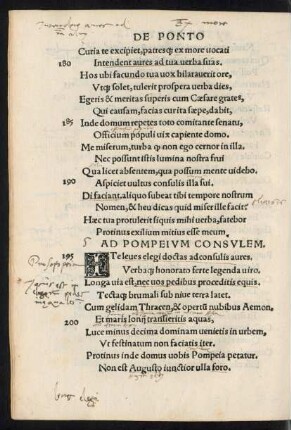 DE PONTO
Curia te excipiet, patresq; ex more uocati
180 Intendent aures ad tua uerba suas.
Hos ubi facundo tua uox hilarauerit ore,
Vtq; solet, tulerit prospera uerba dies,
Egeris & meritas superis cum Cæsare grates,
Qui causam, facias cur ita sæpe, dabit,
185 Inde domum repetes toto comitante senatu,
Officium populi uix capiente domo.
Me miserum, turba q non ego cernor in illa.
Nec possunt istis lumina nostra frui
Qua licet absentem, qua possum mente uidebo.
190 Aspiciet uultus consulis illa sui.
Di faciant, aliquo subeat tibi tempore nostrum
Nomen, & heu dicas quid miser ille facit?
Hæc tua protulerit siquis mihi uerba, fatebor
Protinus exilium mitius esse meum.
5 AD POMPEIVM CONSVLEM.
195 ITe leues elegi doctas ad consulis aures.
Verbaq; honorato ferte legenda uiro.
Longa uia est, nec uos pedibus proceditis equis.
Tectaq; brumali sub niue terra latet.
Cum gelidam Thracen, & opertũ nubibus Aemon,
200 Et maris Ionij transieritis aquas,
Luce minus decima dominam uenietis in urbem,
Vt festinatum non faciatis iter.
Protinus inde domus uobis Pompeia petatur.
Non est Augusto iunctior ulla foro.